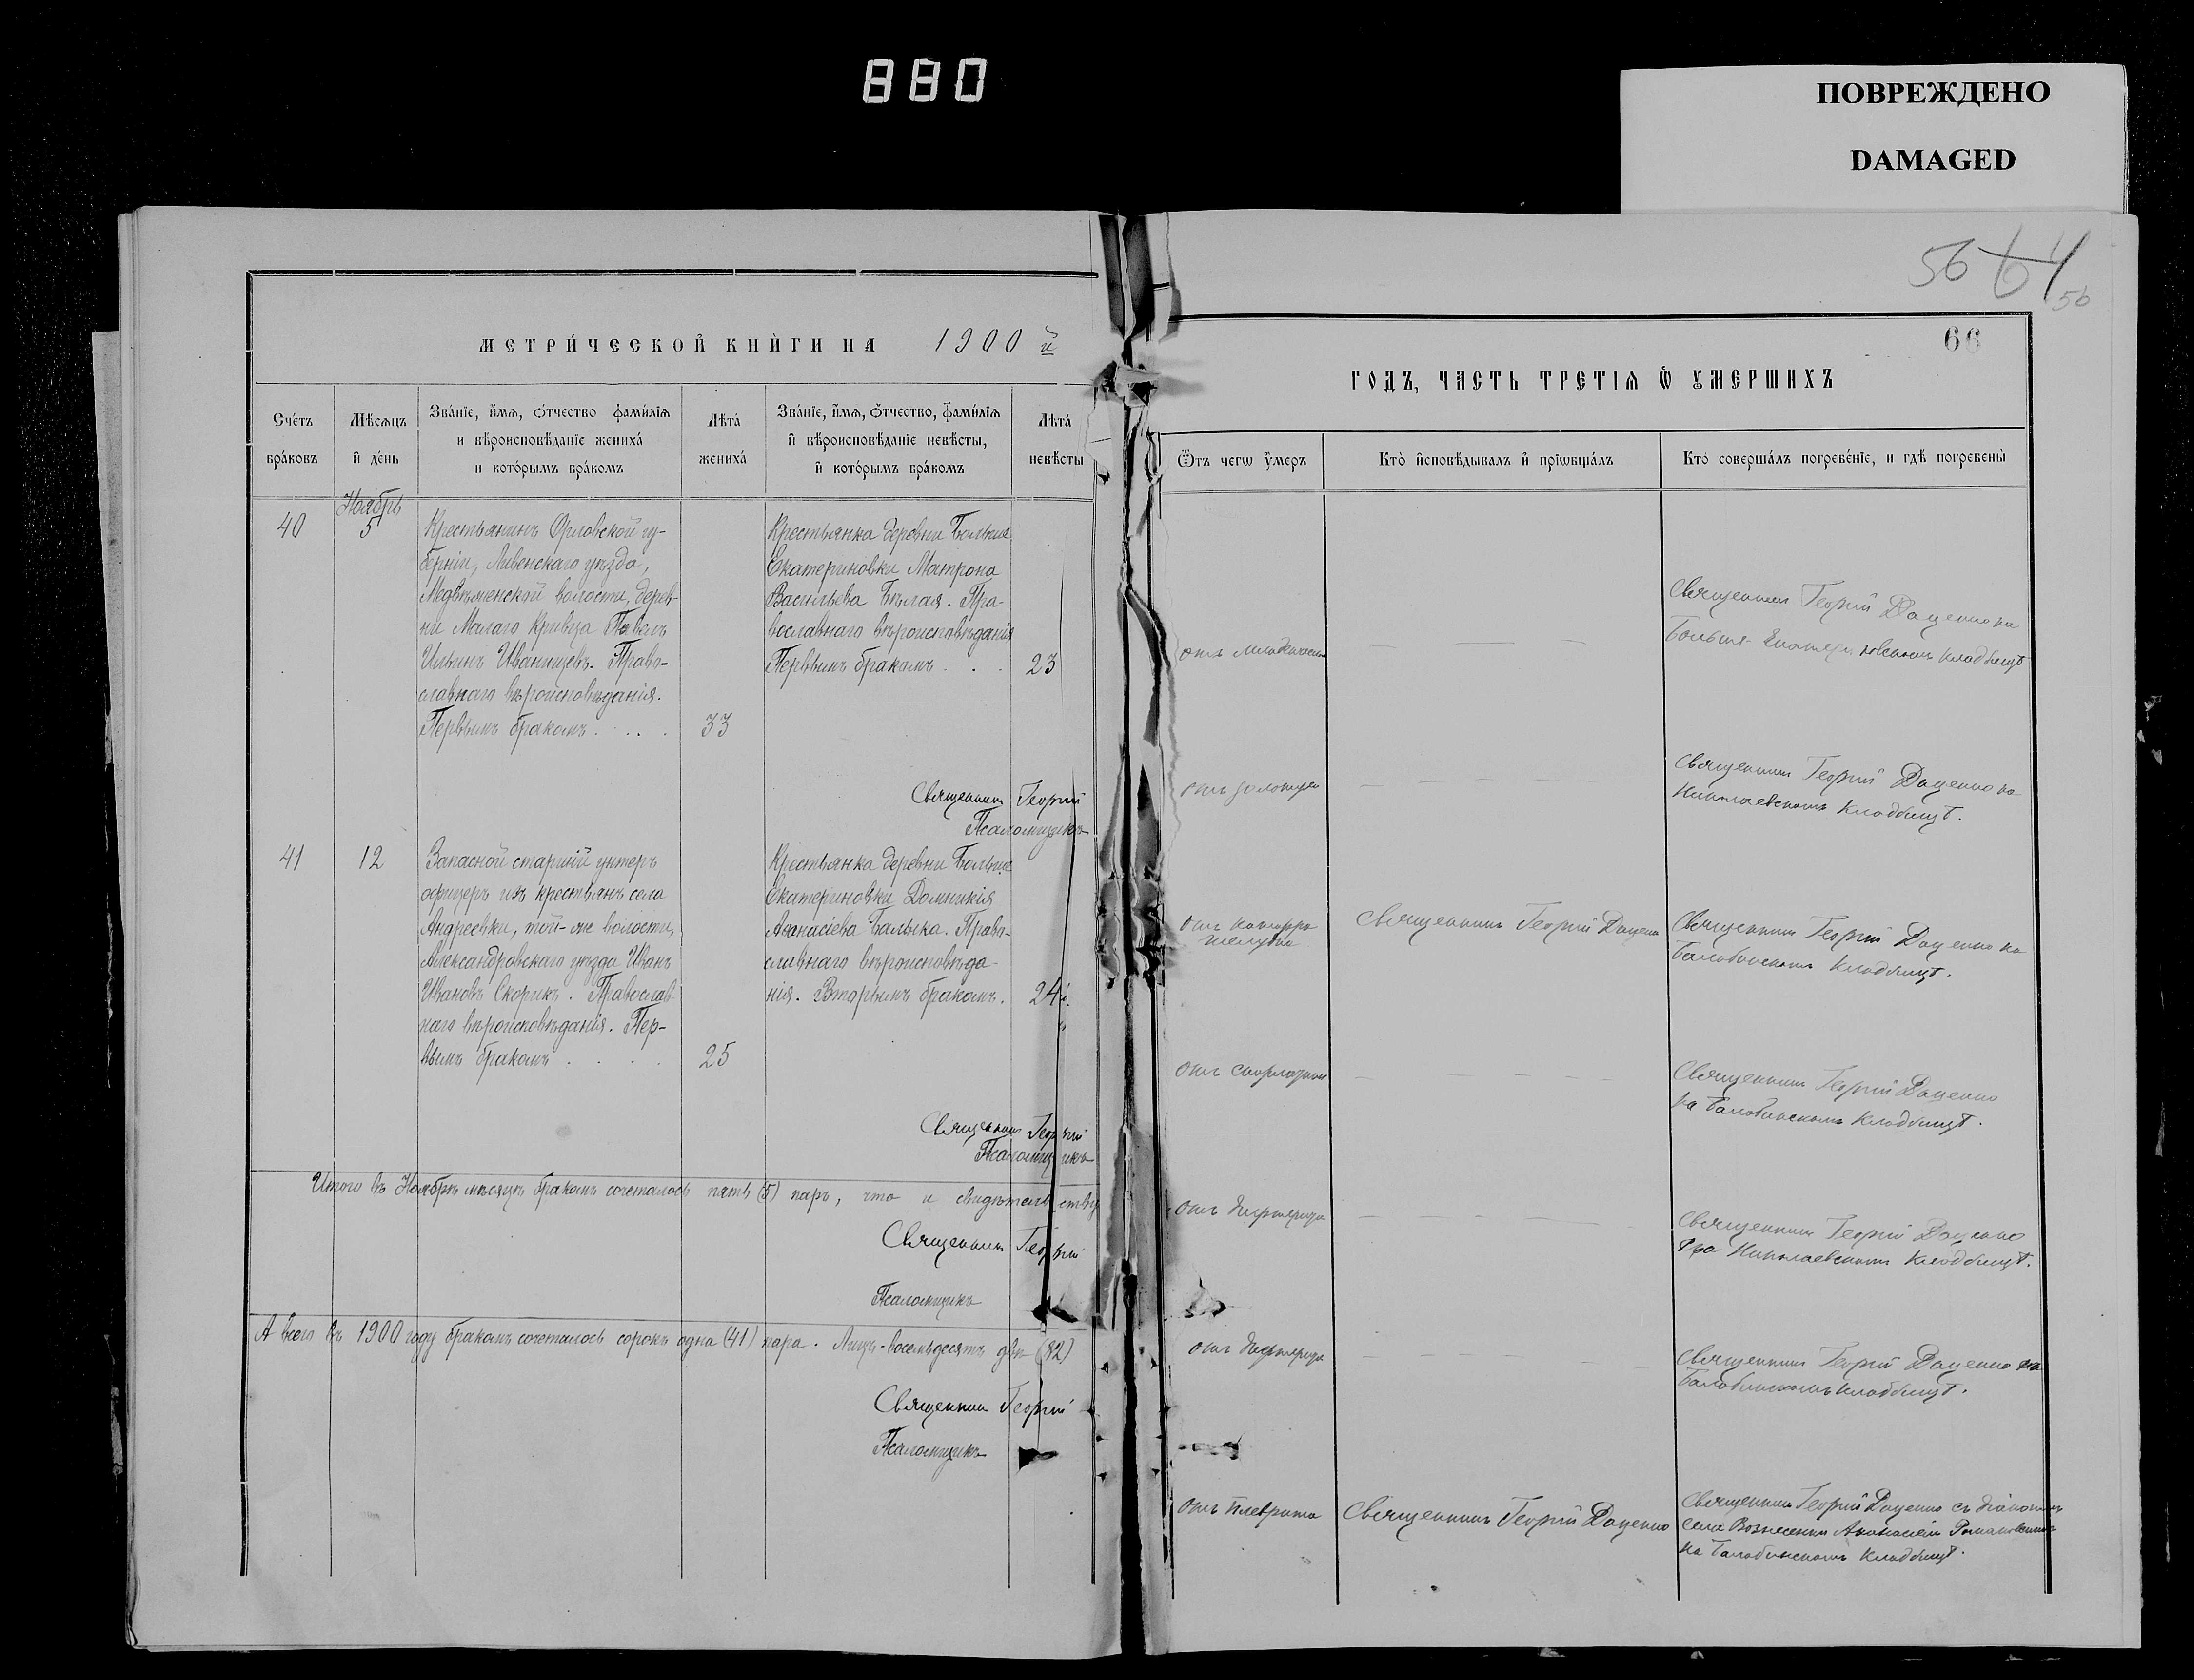 880
ПОВРЕЖДЕНО
DAMAGED
МЕТРИ́ЧЕСКОЙ КНИ́ГИ НА 1900 й
Сче́тъ бра́ковъ
Мѣ́сѧцъ и҆ де́нь
Зва́нїе, и҆́мѧ, ѻ҆́тчество фами́лїѧ
и вѣроисповѣ́данїе жениха́
и кото́рымъ бра́комъ
Лѣта́ жениха́
Зва́нїе, и҆́мѧ, ѻ҆́тчество, фами́лїѧ
и҆ вѣроисповѣ́данїе невѣ́сты,
и҆ кото́рымъ бра́комъ
Лѣта́ невѣ́сты
Ноябрь
40
5
Крестьянинъ Орловской гу-
берніи, Ливенскаго уѣзда,
волости, дерев-
ни Малаго Кривца Павелъ
Ильинъ Иванищевъ. Право-
славнаго вѣроисповѣданія.
Первымъ бракомъ . . . .
33
Крестьянка деревни Больше
Екатериновки Матрона
Васильева Бѣлая. Пра-
вославнаго вѣроисповѣданія
Первымъ бракомъ . . .
23
Священникъ Георгій
Псаломщикъ
41
12
Запасной старшій унтеръ
офицеръ изъ крестьянъ села
Андреевки, той-же волости,
Александровскаго уѣзда Иванъ
Ивановъ Скорикъ. Православ-
наго вѣроисповѣданія. Пер-
вымъ бракомъ . . . .
25
Крестьянка деревни Больше
Екатериновки Домникія
Аѳанасіева Балыка. Право-
славнаго вѣроисповѣда-
нія. Вторымъ бракомъ.
24
Священникъ Георгій
Псаломщикъ
Итого въ Ноябрѣ мѣсяцѣ бракомъ сочеталось пять (5) паръ, что и свидѣтельству
Священникъ Георгій
Псаломщикъ
А всего въ 1900 году бракомъ сочеталось сорокъ одна (41) пара. Лицъ - восемьдесятъ два (82)
Священникъ Георгій
Псаломщикъ
56 64
56
66
ГОДЪ, ЧАСТЬ ТРЕТІѦ Ѡ҆ ОУМЕРШИХЪ
Ѿ чегѡ ᲂу҆́меръ
Кто̀ и҆сповѣ́дывалъ и҆ прїѡбща́лъ
Кто̀ соверша́лъ погребе́нїе, и гдѣ̀ погребены̀
Священникъ Георгій Доценко на
Больше-Екатериновскомъ кладбищѣ
Священникъ Георгій Доценко на
Николаевскомъ кладбищѣ.
отъ катарра
желудка
Священникъ Георгій Доценко
Священникъ Георгій Доценко на
Балабинскомъ кладбищѣ.
отъ скарлатины
Священникъ Георгій Доценко
на Балабинскомъ кладбищѣ.
отъ дифтерита
Священникъ Георгій Доценко
на Николаевскомъ кладбищѣ.
отъ дифтерита
Священникъ Георгій Доценко на
Балабинскомъ кладбищѣ.
отъ плеврита
Священникъ Георгій Доценко
Священникъ Георгій Доценко съ діакономъ
села Вознесенки Аѳанасіемъ Романовскимъ
на Балабинскомъ кладбищѣ.